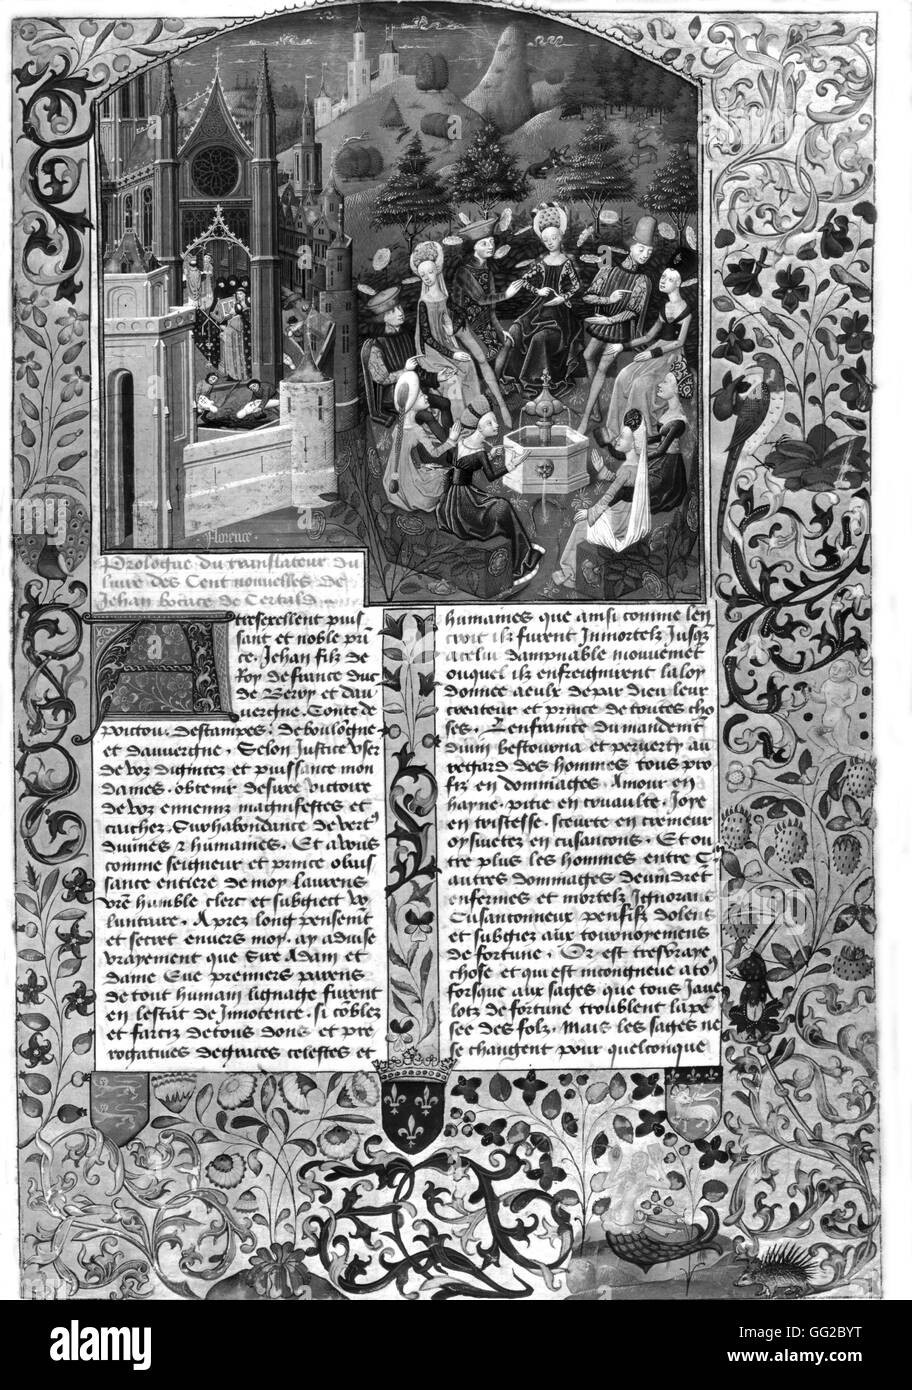 florence.
Prologue du translateur du
livre des Cent nouvelles de
Jehan bocace de Certald
A tresexcellent puis
sant et noble prin
ce. Jehan filz de
Roy de france duc
de Berry et dau
uergne. Conte de
poictou. destampes. de boulōgne
et dauuergne. Selon Justice user
de voz dignitez et puissance mon
daines. obtenir desiree victoire
de voz ennemis magnifestes et
cachez. Surhabondance de vertꝰ
diuines ⁊ humaines. Et a vous
comme seigneur et prince obeis
sance entiere de moy laurens
vr̄e humble clerc et subgiect vo
luntaire. Apres long pensemēt
et secret enuers moy. ay aduise
vrayement que Sire Adam et
dame Eue premiers parens
de tout humain lignage furent
en lestat de Innocence. si nobles
et farciz de tous dons et pre
rogatiues de graces celestes et
humaines que ainsi comme len
croit ilz furent Inmortelz Jusq̄s
a celui dampnable mouuement
ouquel ilz enfreignirent la loy
donnee a eulx de par dieu leur
createur et prince de toutes cho
ses. Lenfrainte du mandemēt
diuin bestourna et peruerty au
regard des hommes tous pro
fiz en dommages. Amour en
hayne. pitie en cruaulte. Joye
en tristesse. seurte en cremeur
oysiuetez en cusancons. Et ou
tre plus les hommes entre
autres dommages deuindrēt
enfermes et mortelz Ignorans
Cusanconneux pensifz dolens
et subgiez aux tournoyemens
de fortune. Or est tresvraye
chose et qui est incongneue a toꝰ
forsque aux sages que tous
de fortune troublent la pē
see des folz. Mais les sages ne
se changent pour quelconque
alamy
a
a
a
alamy stock photo
GG2BYT
www.alamy.com